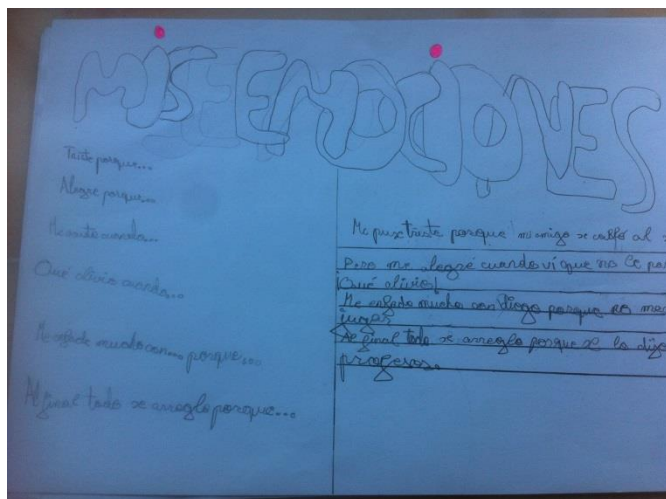 MIS EMOCIONES
Triste porque...
Alegre porque...
cuando...
Qué alivio cuando...
Me enfade mucho con... porque...
Al final todo se arreglo porque...
Me puse triste porque mi amigo se al
Pero me alegré cuando vi que no le
¡Qué alivio!
Me enfado mucho con diego porque no me
jugar
Al final todo se arreglo porque se lo dije
profesor.